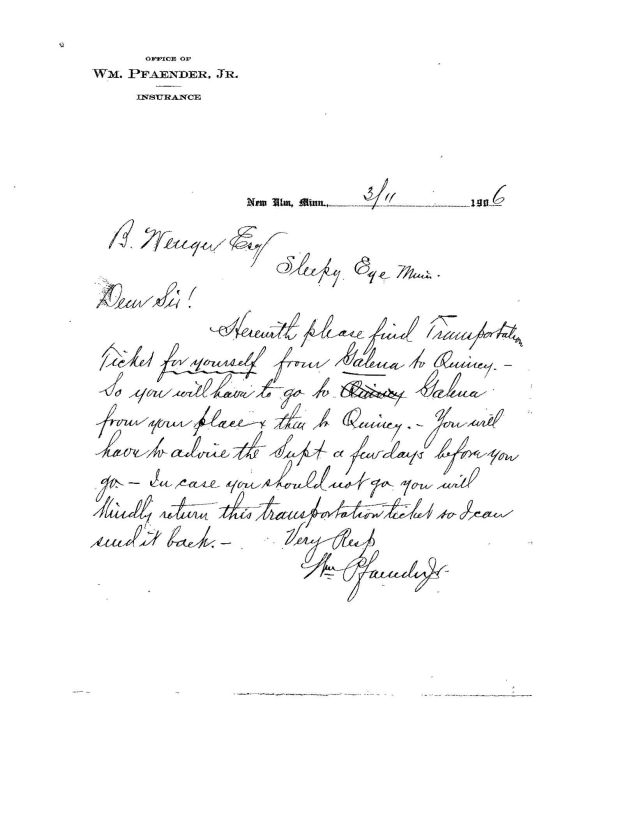 OFFICE OF
WM. PFAENDER, JR.
INSURANCE
New Ulm, Minn., 3/11 1906
B. Wenger Esq
Sleepy Eye Minn.
Dear Sir!
Herewith please find Transportation
Ticket for yourself from Galena to Quincy. –
So you will have to go to Quincy Galena
from your place & then to Quincy. – You will
have to advise the Supt a few days before you
go – In case you should not go you will
Kindly return this transportation ticket so I can
send it back. – Very Resp
Wm Pfaender Jr